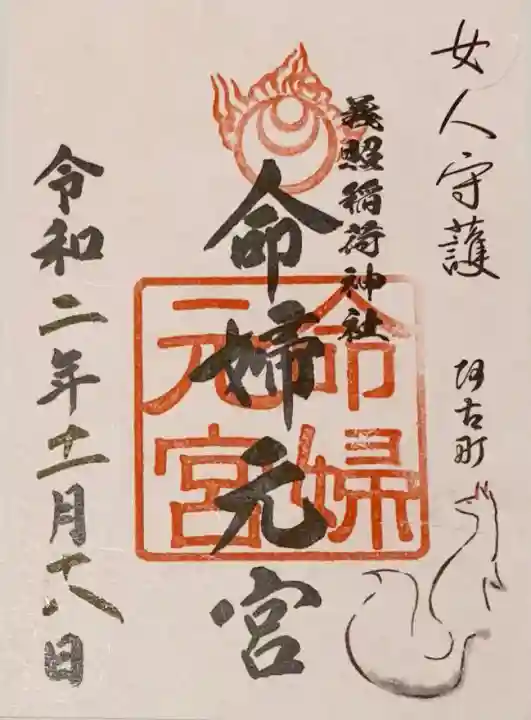 女人守護
阿古町
義照稲荷神社
命婦元宮
命婦
元宮
令和二年十一月十八日